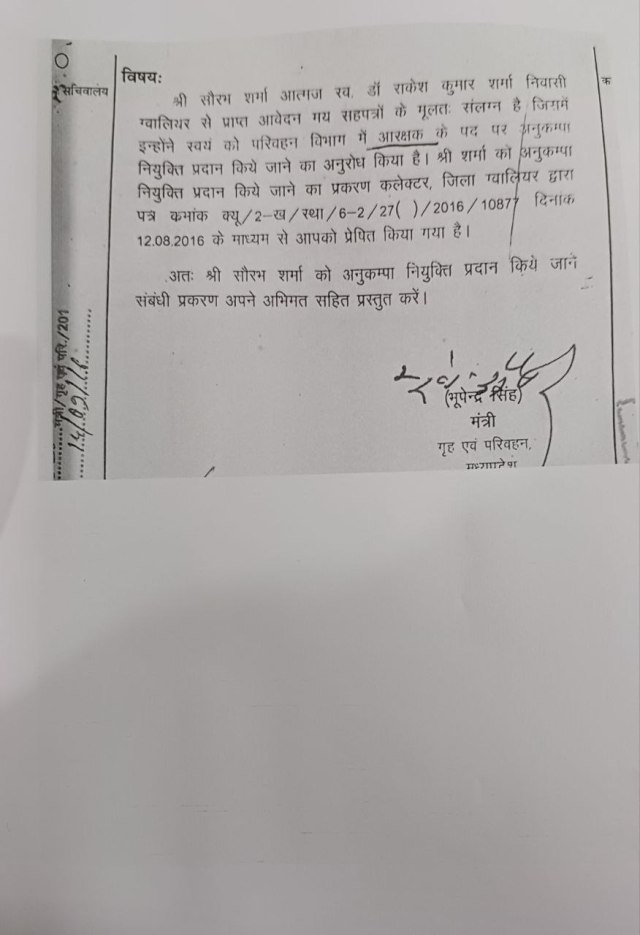 सचिवालय
विषयः
श्री सौरभ शर्मा आत्मज स्व. डॉ राकेश कुमार शर्मा निवासी
ग्वालियर से प्राप्त आवेदन मय सहपत्रों के मूलतः संलग्न है जिसमें
इन्होंने स्वयं को परिवहन विभाग में आरक्षक के पद पर अनुकम्पा
नियुक्ति प्रदान किये जाने का अनुरोध किया है। श्री शर्मा को अनुकम्पा
नियुक्ति प्रदान किये जाने का प्रकरण कलेक्टर, जिला ग्वालियर द्वारा
पत्र कमांक क्यू/2-ख/स्था/6-2/27( )/2016/10877 दिनांक
12.08.2016 के माध्यम से आपको प्रेषित किया गया है।
अतः श्री सौरभ शर्मा को अनुकम्पा नियुक्ति प्रदान किये जाने
संबंधी प्रकरण अपने अभिमत सहित प्रस्तुत करें।
(भूपेन्द्र सिंह)
मंत्री
गृह एवं परिवहन,
मध्यप्रदेश
मंत्री/गृह एवं परि./201
क